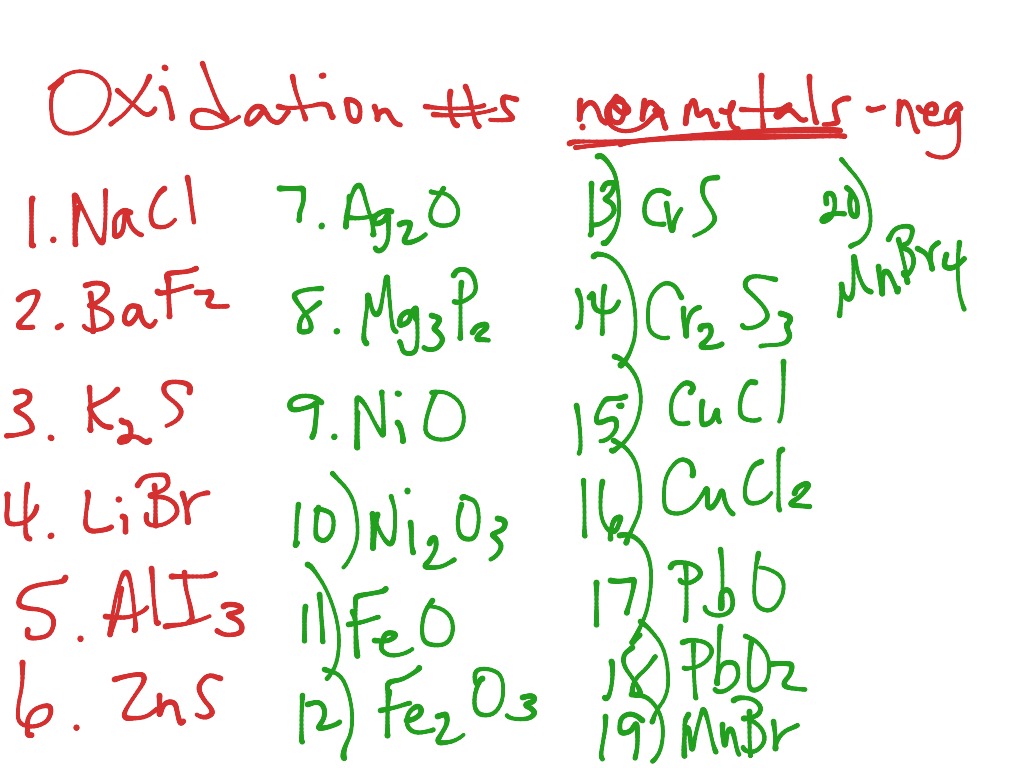 Oxidation #s nonmetals - neg
1. NaCl
2. BaF2
3. K2S
4. LiBr
5. AlI3
6. ZnS
7. Ag2O
8. Mg3P2
9. NiO
10) Ni2O3
11) FeO
12) Fe2O3
13) CrS
14) Cr2S3
15) CuCl
16) CuCl2
17) PbO
18) PbO2
19) MnBr
20)
MnBr4